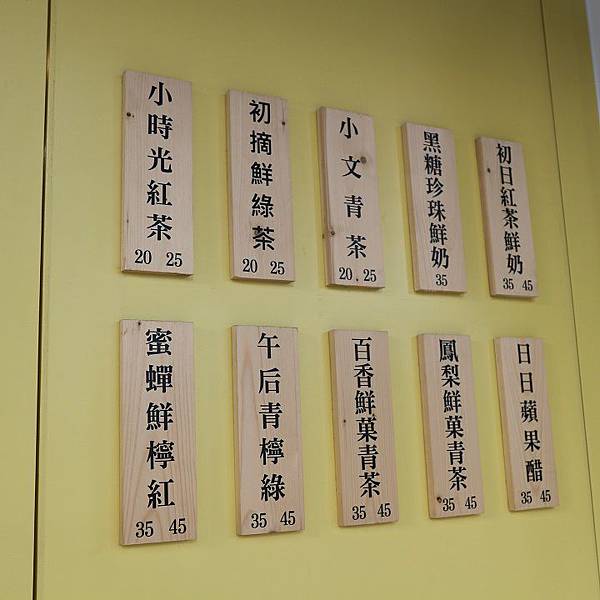 小時光紅茶
20 25
初摘鮮綠茶
20 25
小文青茶
20.25
黑糖珍珠鮮奶
35
初日紅茶鮮奶
35 45
蜜蟬鮮檸紅
35 45
午后青檸綠
35 45
百香鮮菓青茶
35 45
鳳梨鮮菓青茶
35 45
日日蘋果醋
35 45